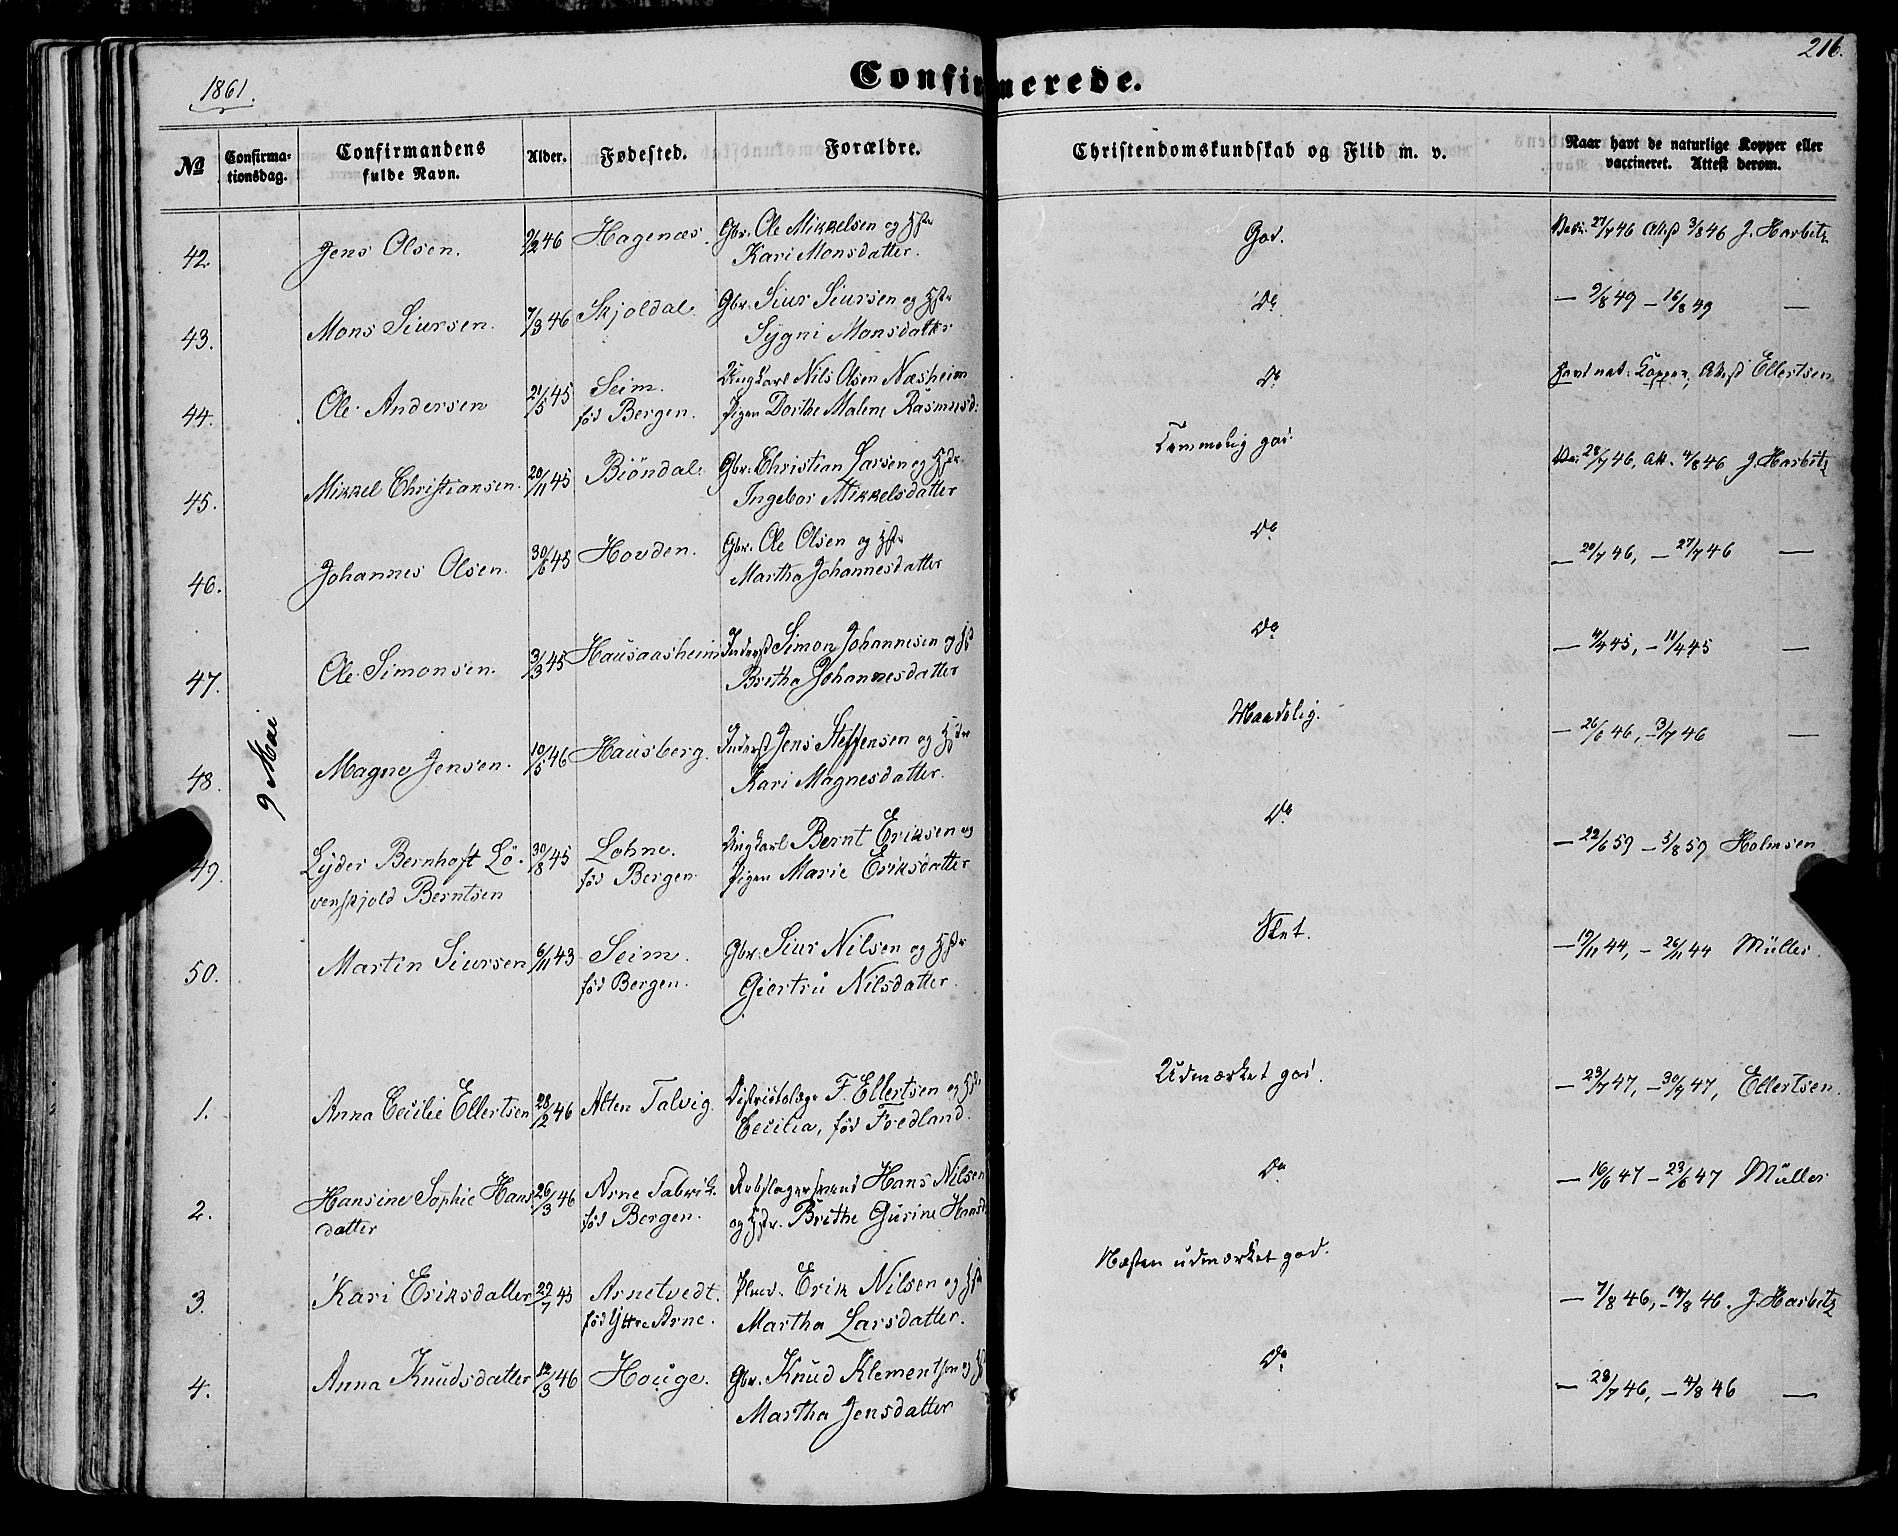 216.
1861.
Confirmerede.
No
Confirma-
tionsdag.
Confirmandens
fulde Navn.
Alder.
Fødested.
Forældre.
Christendomskundskab og Flid m. v.
Naar havt de naturlige Kopper eller
vaccineret. Attest derom.
9 Mai
42. Jens Olsen. 46 Hagenæs. Gbr. Ole Mikkelsen og Hstr
Kari Monsdatter.
God.
27/7 46 Attest 3/8 46 J. Harbitz
43. Mons Siursen. 7/3 46 Skjoldal. Gbr. Siur Siursen og Hstr
Sygni Monsdatter
Do
— 9/8 49 — 16/8 49 —
44. Ole Andersen 21/5 45 Seim. Ungkarl Nils Olsen Næsheim
fød Bergen. Pigen Dorthe Malene Rasmusd:
Do
Havt nat: Kopper, Attest Ellertsen
45. Mikkel Christiansen. 20/11 45 Biöndal. Gbr. Christian Larsen og Hstr
Ingebor Mikkelsdatter
Temmelig god.
28/7 46, Att. 4/8 46 J. Harbitz
46. Johannes Olsen. 30/6 45 Hovden. Gbr. Ole Olsen og Hstr
Martha Johannesdatter
Do
— 20/7 46, — 27/7 46 —
47. Ole Simonsen. 3/3 45 Hausaasheim Inderst Simon Johannesen og Hst
Britha Johannesdatter
Do
— 4/4 45, — 11/4 45 —
48. Magne Jensen. 10/5 46 Hausberg. Inderst Jens Steffensen og Hstr
Kari Magnesdatter.
Maadelig.
— 26/6 46, — 3/7 46 —
49. Lyder Bernhoft Lö- 30/8 45 Lohne. Ungkarl Bernt Eriksen og
venskjold Berntsen fød Bergen. Pigen Marie Eriksdatter
Do
— 22/6 59 — 5/8 59 Holmsen
50. Martin Siursen 6/11 43 Seim. Gbr. Siur Nilsen og Hstr
fød Bergen. Giertru Nilsdatter.
Slet.
— 19/11 44, — 26/11 44 Müller.
1. Anna Cecilie Ellertsen 28/2 46 Alten Talvig. Distriktslæge F. Ellertsen og Hstr
Cecilia, fød Fredland.
Udmærket god.
— 23/7 47, — 30/7 47, Ellertsen.
2. Hansine Sophie Hans- 26/3 46 Arne Fabrik. Rebslagersvend Hans Nilsen
datter fød Bergen. og Hstr. Brithe Gurine Hansd
Do
— 16/6 47 — 23/6 47 Müller
3. Kari Eriksdatter 27/7 45 Arnetvedt. Erik Nilsen og Hst
fød Ytre Arne. Martha Larsdatter.
Næsten udmærket god.
— 7/8 46, — 14/8 46. J. Harbitz
4. Anna Knudsdatter 12/3 46 Houge. Gbr. Knud Klementsen og H
Martha Jensdatter
Do
— 28/7 46, — 4/8 46 —